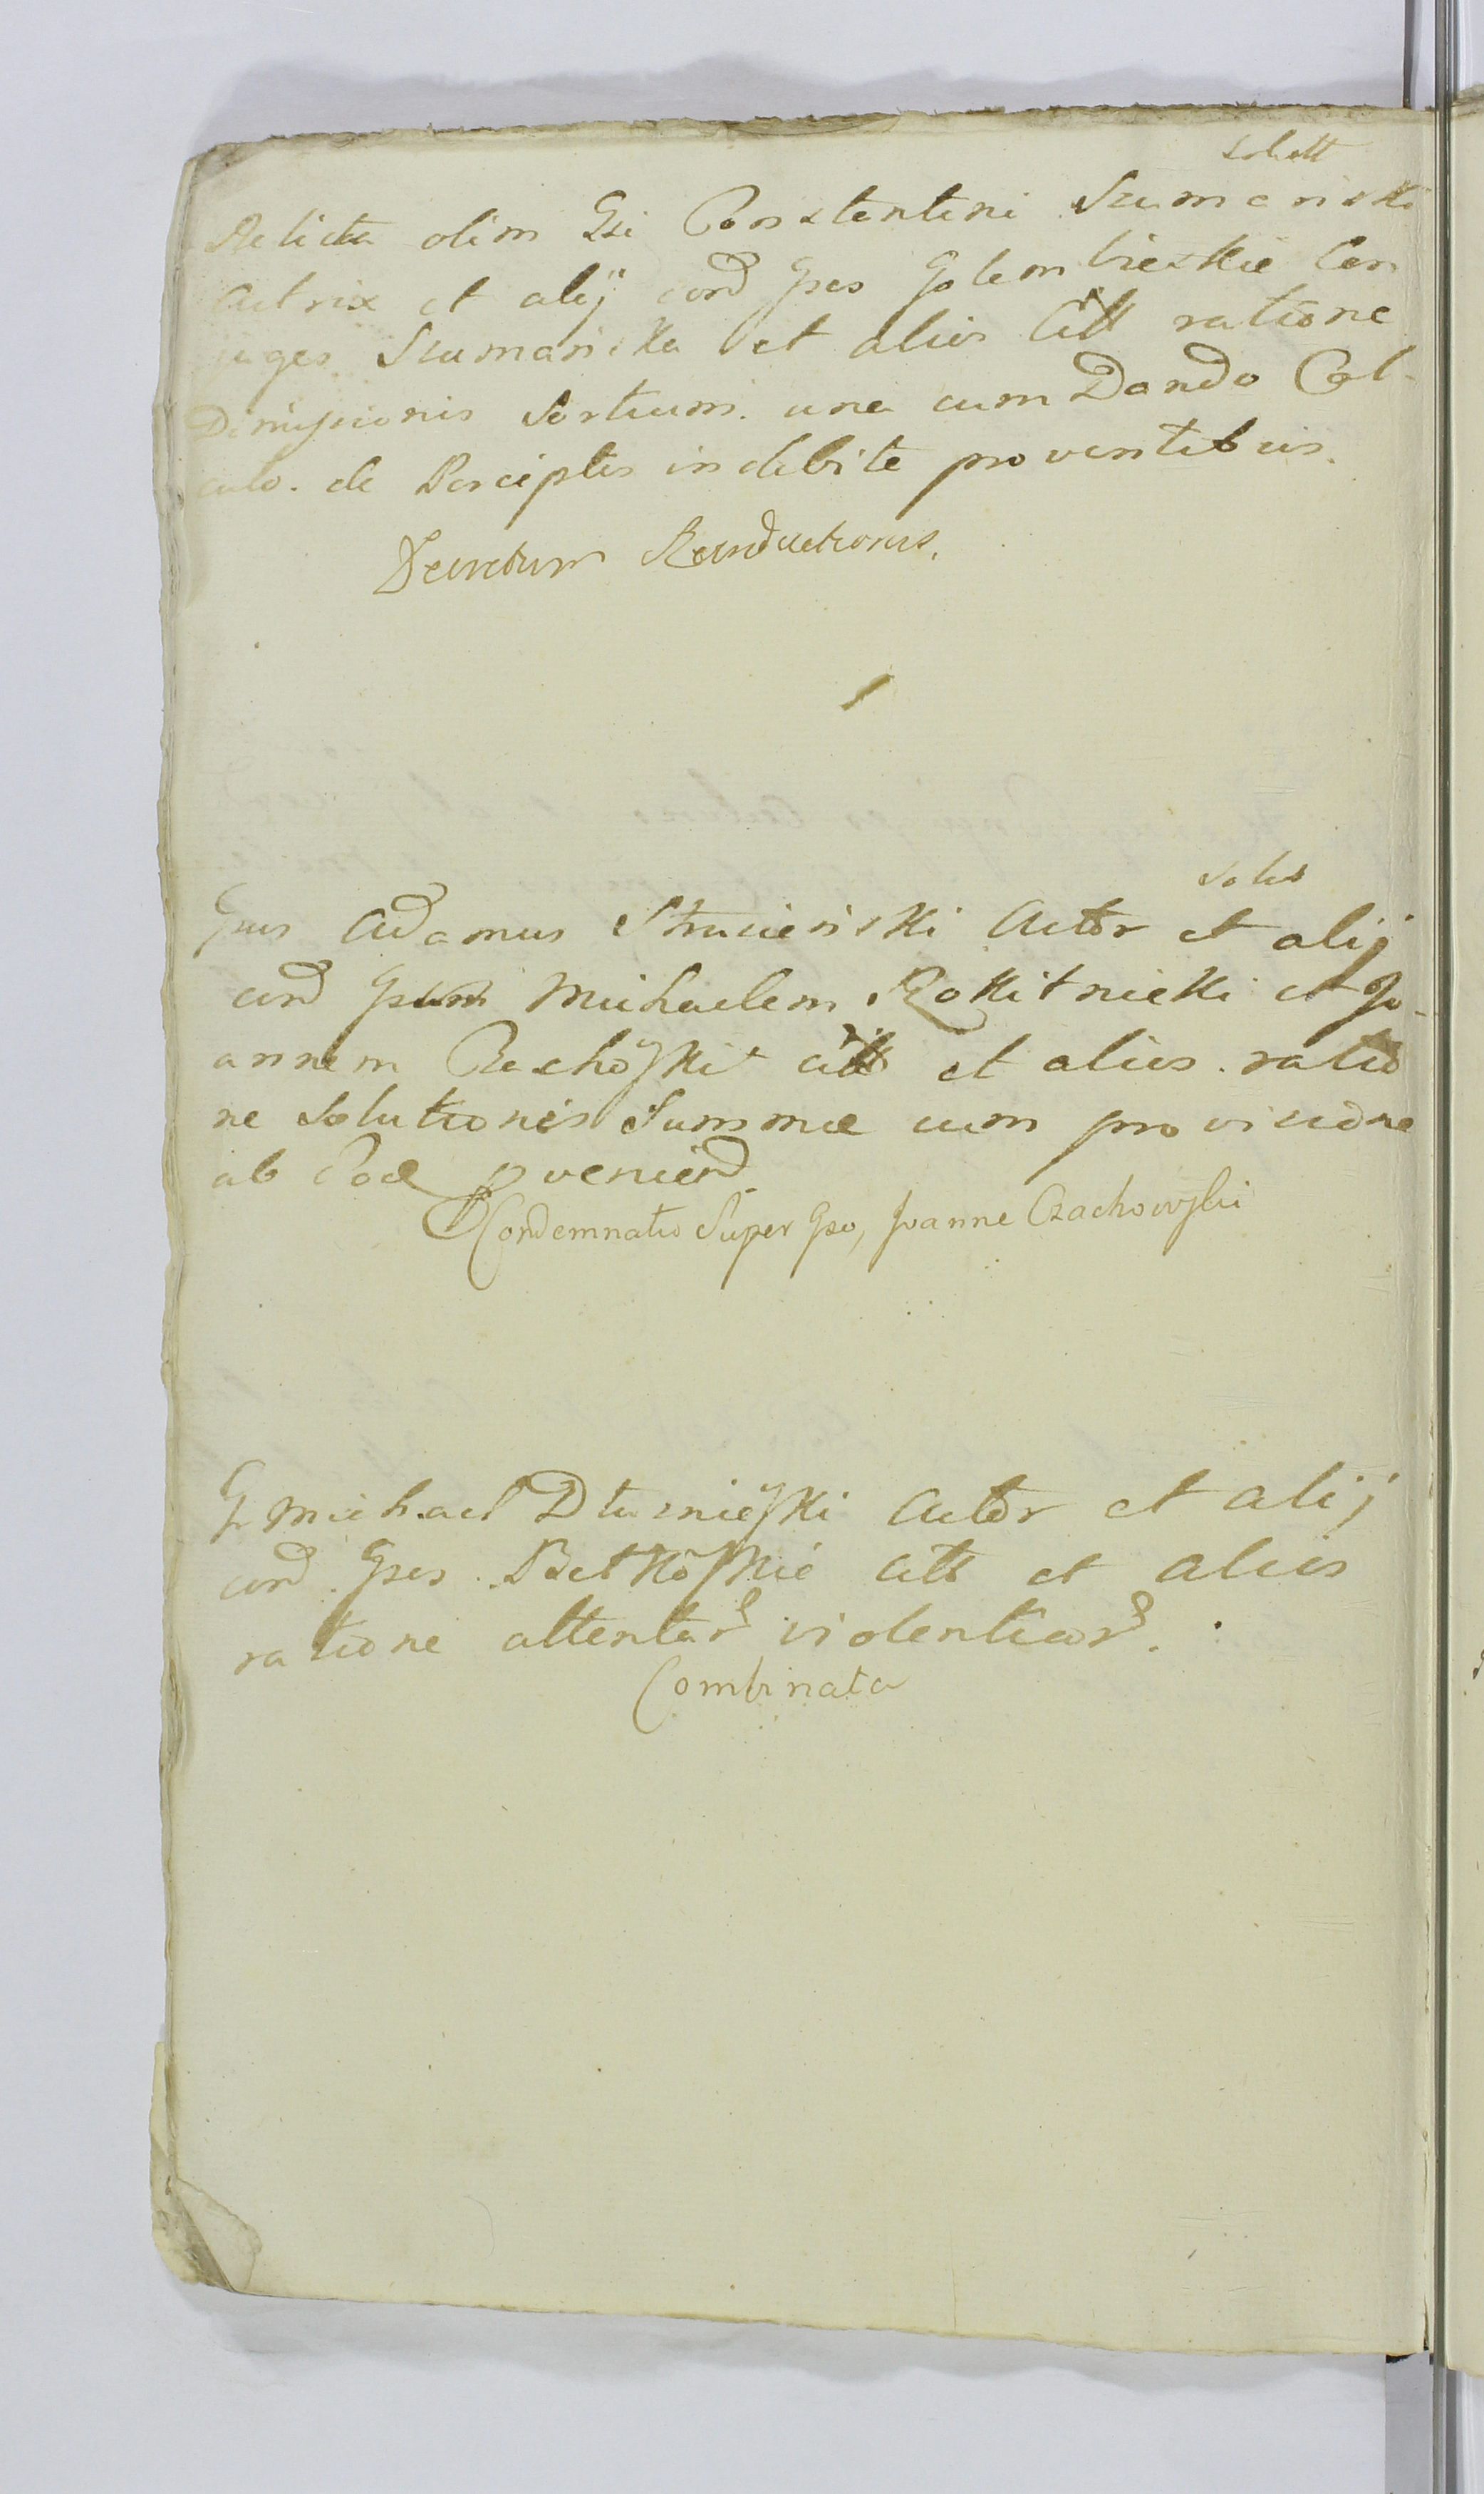 Solutt
Relicta olim Gsi Constentini Szumanski
Actrix et alij cord Gses Golembieskie Con
iuges Szumanska et alios Citt ratione
Dimissionis Sortium una cum Dando Cal-
culo. de Perceptis indebite proventibus.
Decretum Reinductionis.
Solut
Gsus Adamus Strucienski Actor et alij
cord Gsum Michaelem Rokitnicki et Jo-
annem Czachoski citt et alios ratio
ne Solutionis Summæ cum provisione
ab Ea pveniend
Condemnatio Super Gso, Joanne Czachowski
G Michael Dłuznieski Actor et alij
cord Gses Betkoskie Citt et alios
ratione attentar violentiar.
Combinata